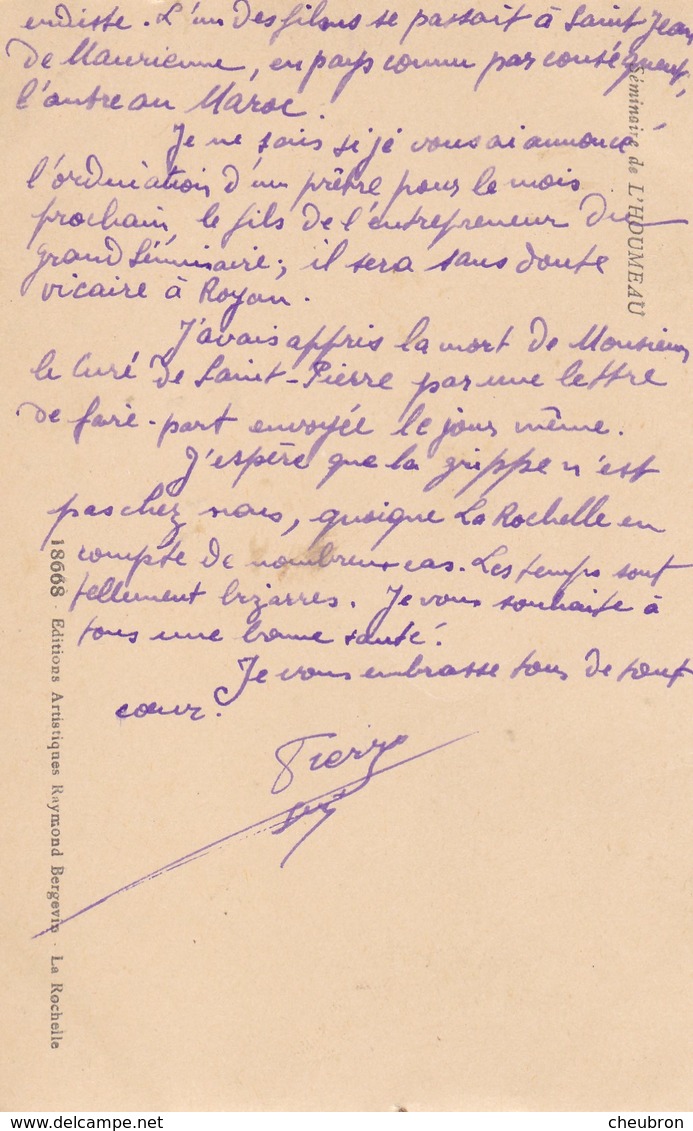 endisse. L'un des films se passait à Saint Jean
de Maurienne, en pays connu par conséquent,
l'autre au Maroc.
Je ne sais si je vous ai annoncé
l'ordination d'un prêtre pour le mois
prochain, le fils de l'entrepreneur du
grand Séminaire; il sera sans doute
vicaire à Royan.
J'avais appris la mort de Monsieur
le Curé de Saint-Pierre par une lettre
de faire-part envoyée le jour même.
J'espère que la grippe n'est
pas chez nous, quoique La Rochelle en
compte de nombreux cas. Les temps sont
tellement bizarres. Je vous souhaite à
tous une bonne santé.
Je vous embrasse tous de tout
cœur.
Pierre
Séminaire de L'HOUMEAU
18668 - Editions Artistiques Raymond Bergevin - La Rochelle
delcampe.net
cheubron